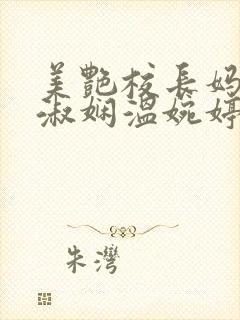 美艷校長媽
淑嫻溫婉婷
朱灣